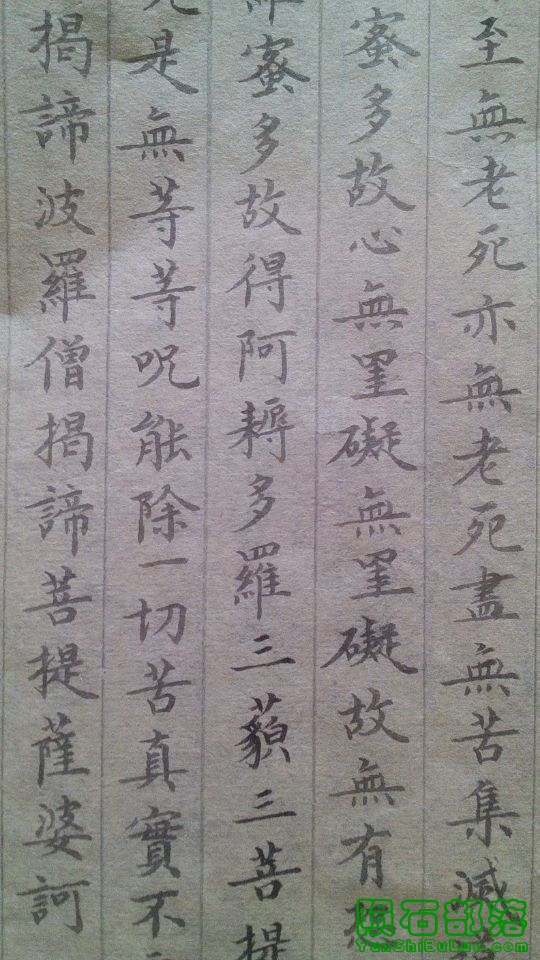 至無老死亦無老死盡無苦集滅
蜜多故心無罣礙無罣礙故無有
羅蜜多故得阿耨多羅三藐三菩提
是無等等呪能除一切苦真實不
揭諦波羅僧揭諦菩提薩婆訶
陨石部落
YunShiBuLuo.com